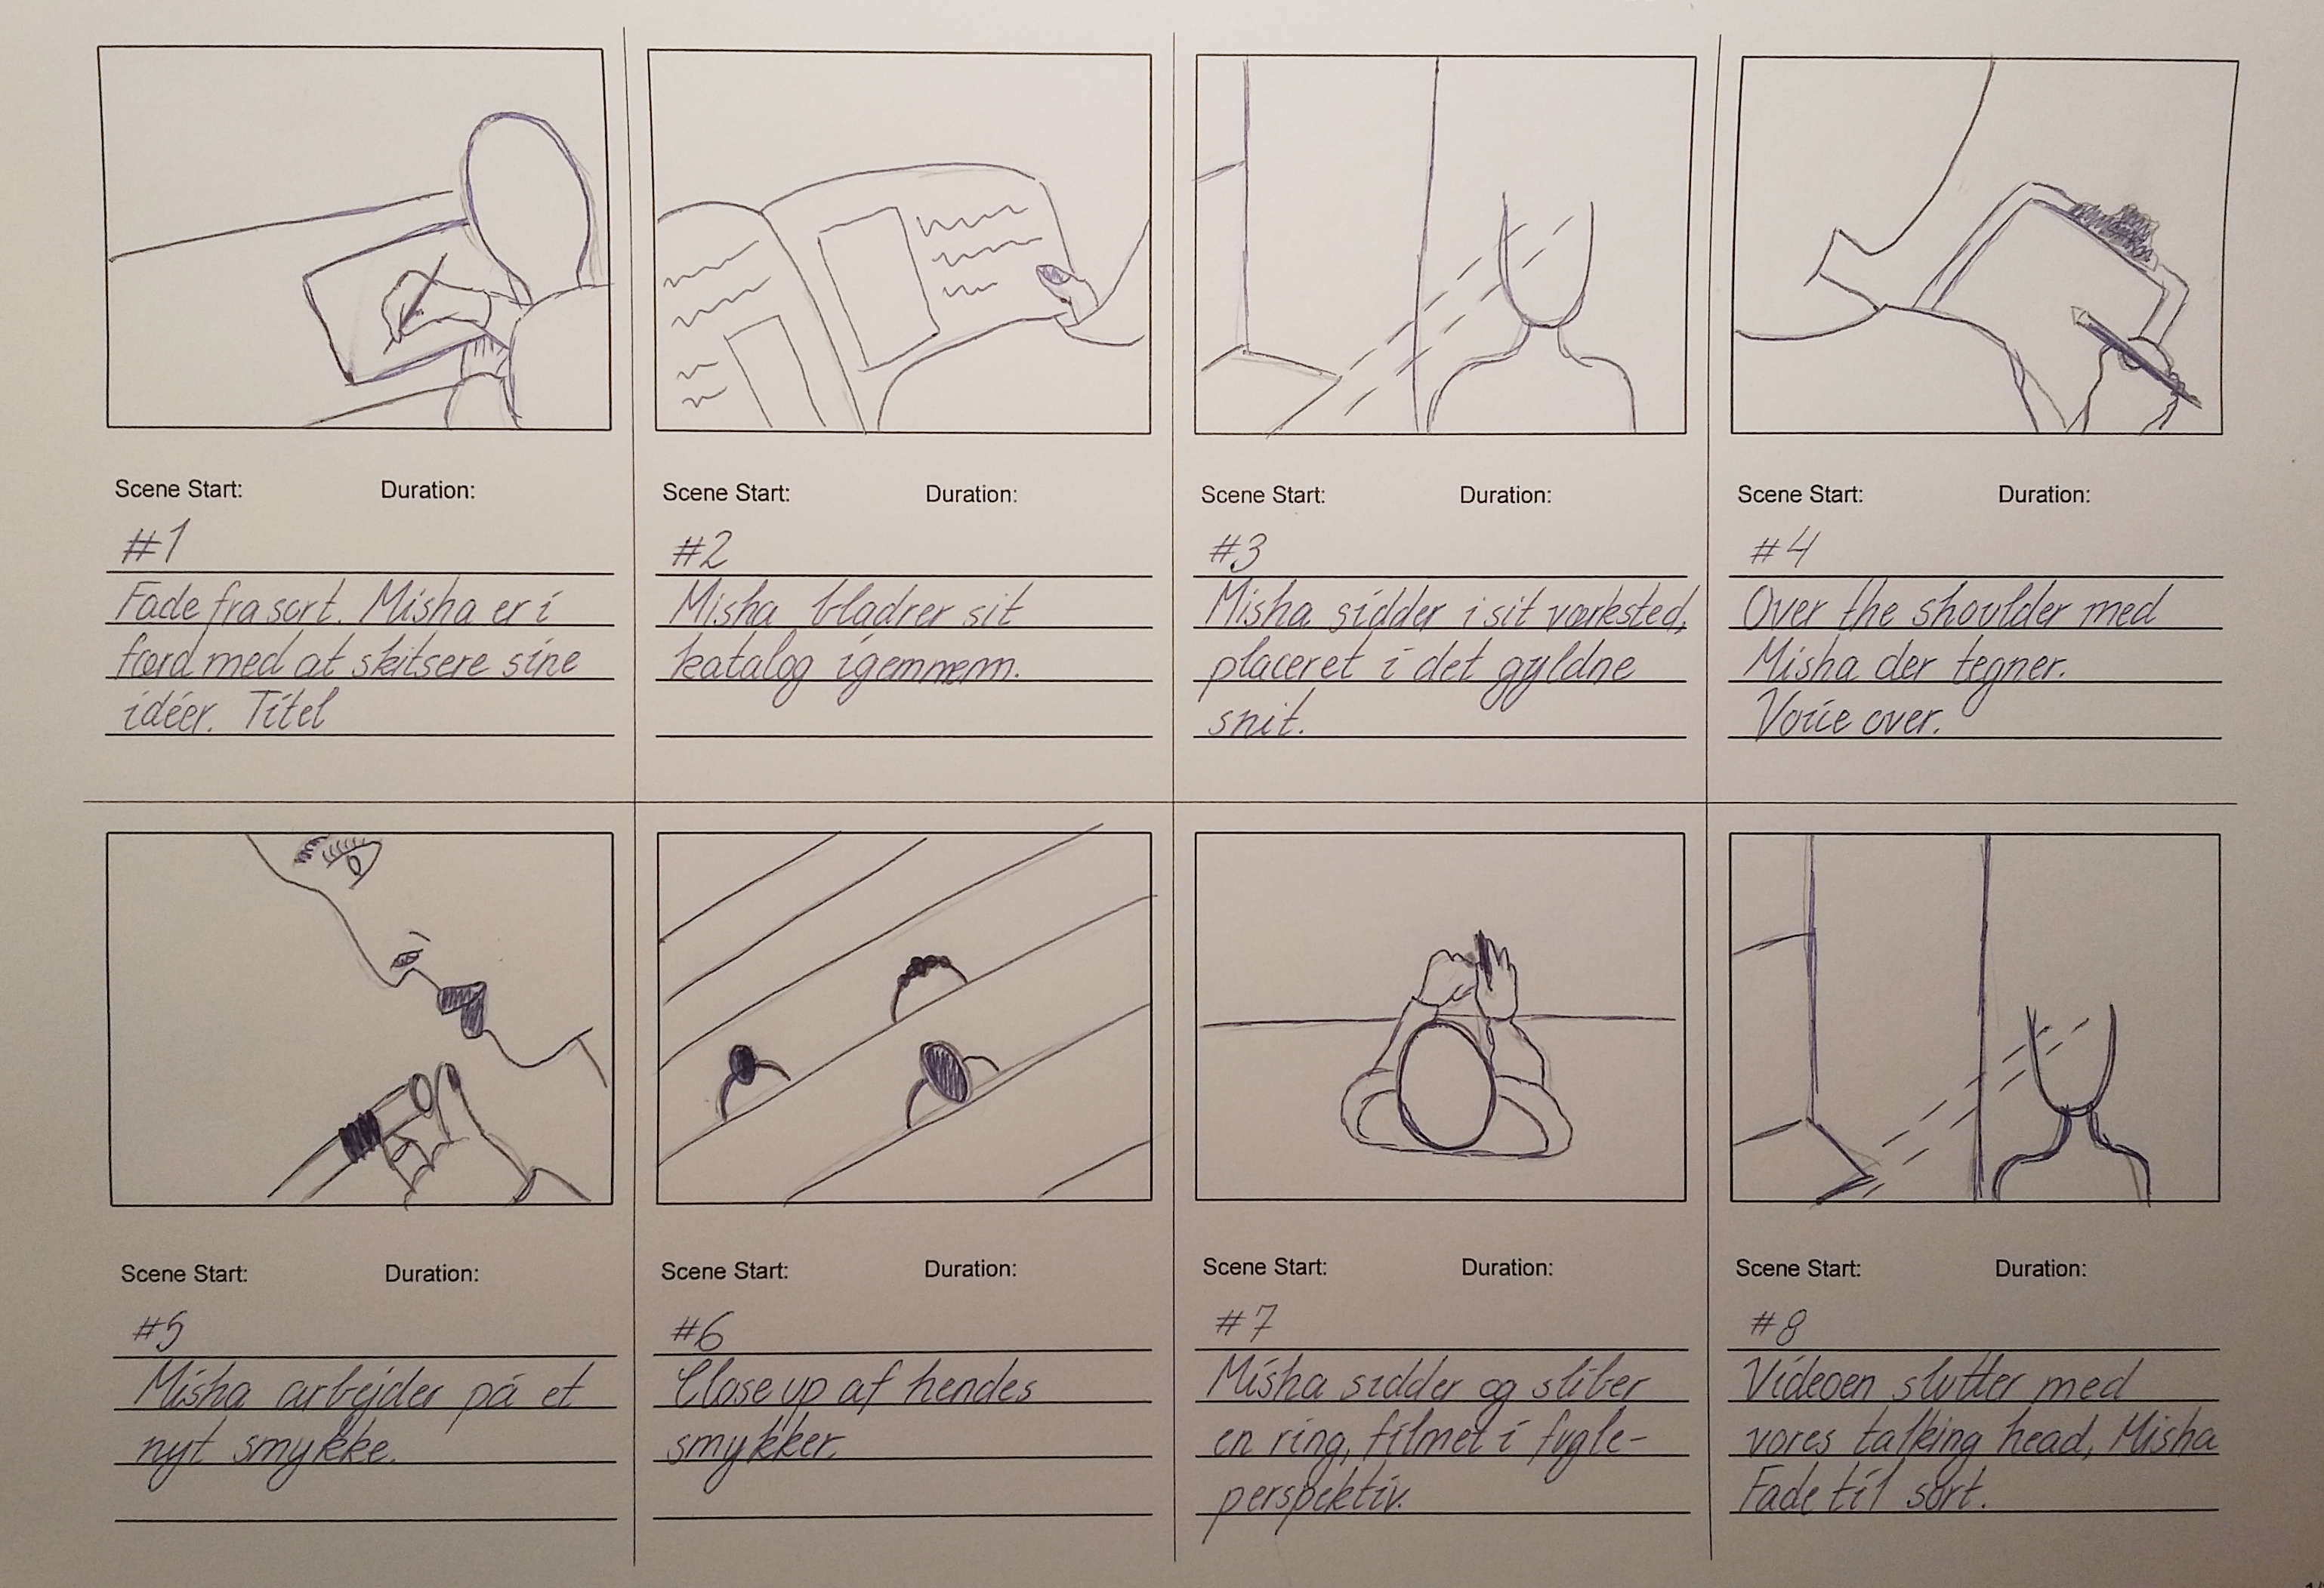 Scene Start: Duration:
#1
Fade fra sort. Misha er i
færd med at skitsere sine
idéer. Titel
Scene Start: Duration:
#2
Misha bladrer sit
katalog igemmem.
Scene Start: Duration:
#3
Misha sidder i sit værksted,
placeret i det gyldne
snit.
Scene Start: Duration:
#4
Over the shoulder med
Misha der tegner.
Voice over.
Scene Start: Duration:
#5
Misha arbejder på et
nyt smykke.
Scene Start: Duration:
#6
Close up af hendes
smykker.
Scene Start: Duration:
#7
Misha sidder og sliber
en ring, filmet i fugle-
perspektiv.
Scene Start: Duration:
#8
Videoen slutter med
vores talking head, Misha
Fade til sort.